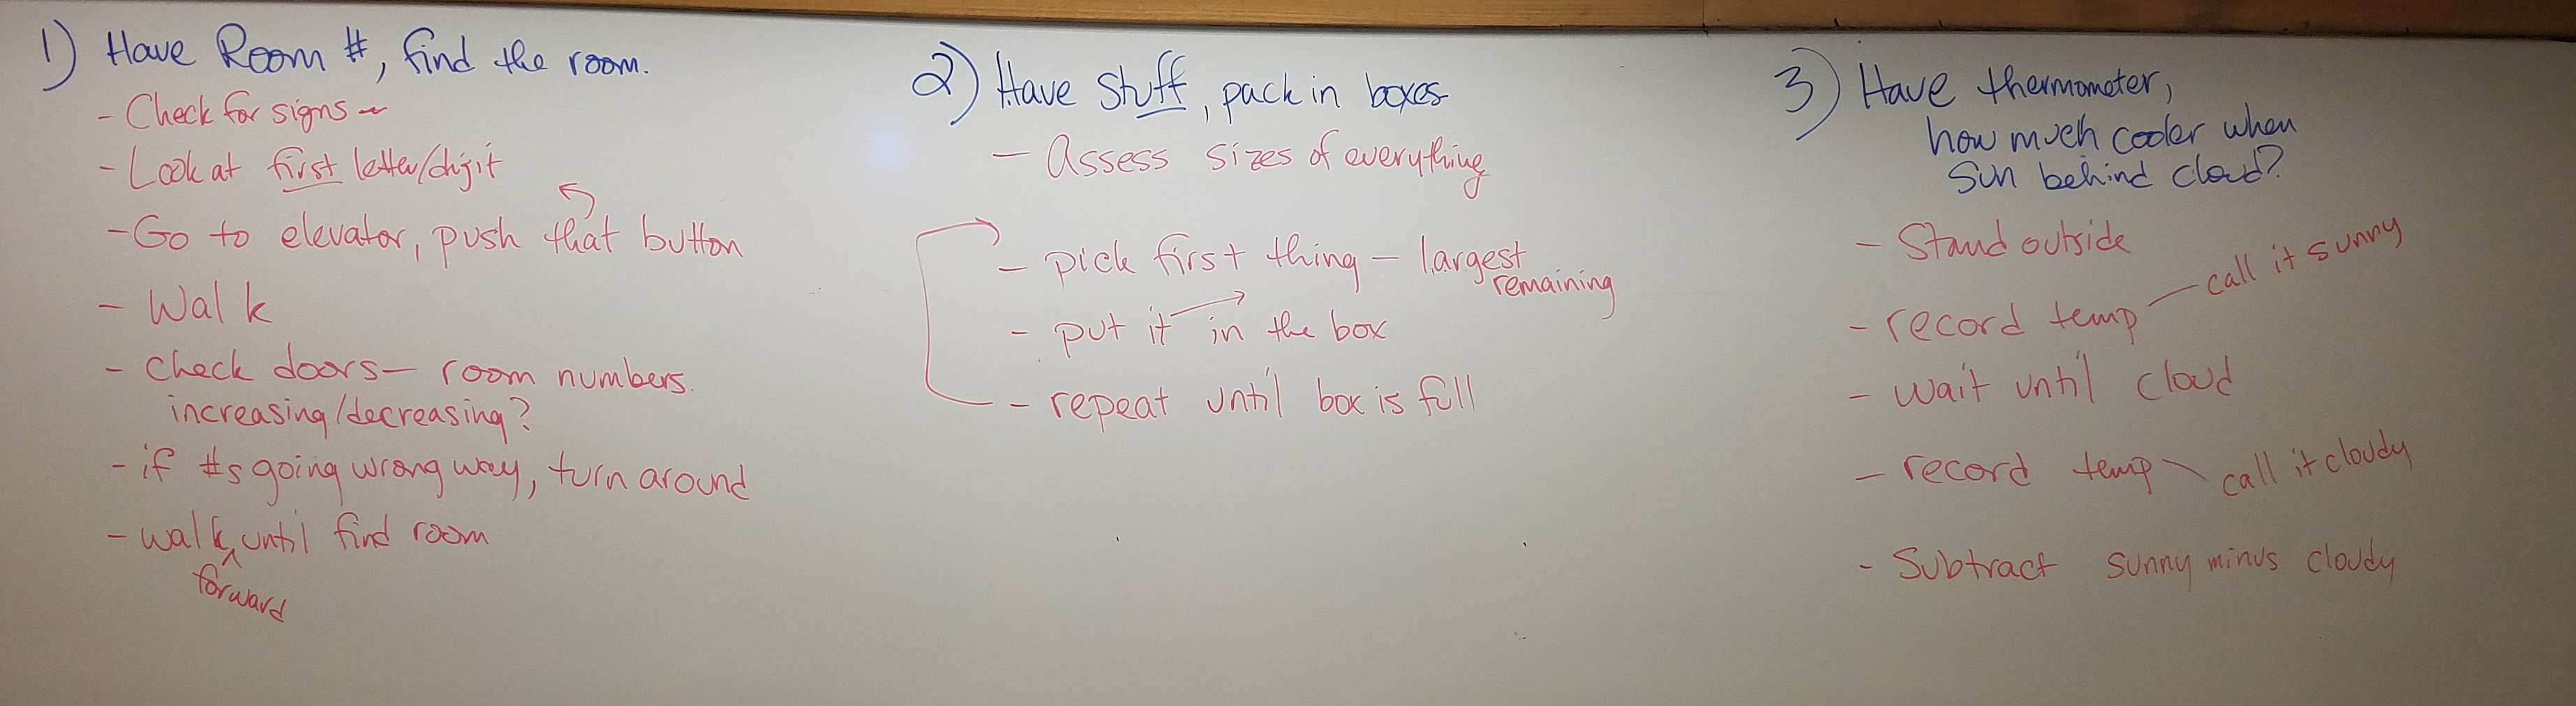 1) Have Room #, find the room.
- Check for signs -
- Look at first letter/digit
- Go to elevator, push that button
- Walk
- check doors - room numbers.
increasing/decreasing?
- if #s going wrong way, turn around
- walk until find room
forward
2) Have Stuff, pack in boxes
- Assess sizes of everything
- pick first thing - largest
remaining
- put it in the box
- repeat until box is full
3) Have thermometer,
how much cooler when
sun behind cloud?
- Stand outside
- record temp - call it sunny
- wait until cloud
- record temp - call it cloudy
- Subtract sunny minus cloudy